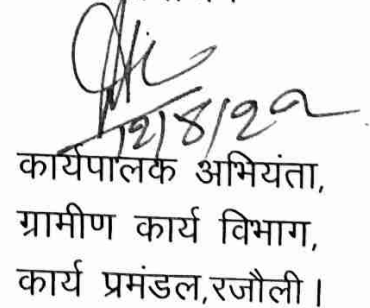 12/8/22
कार्यपालक अभियंता,
ग्रामीण कार्य विभाग,
कार्य प्रमंडल,रजौली।